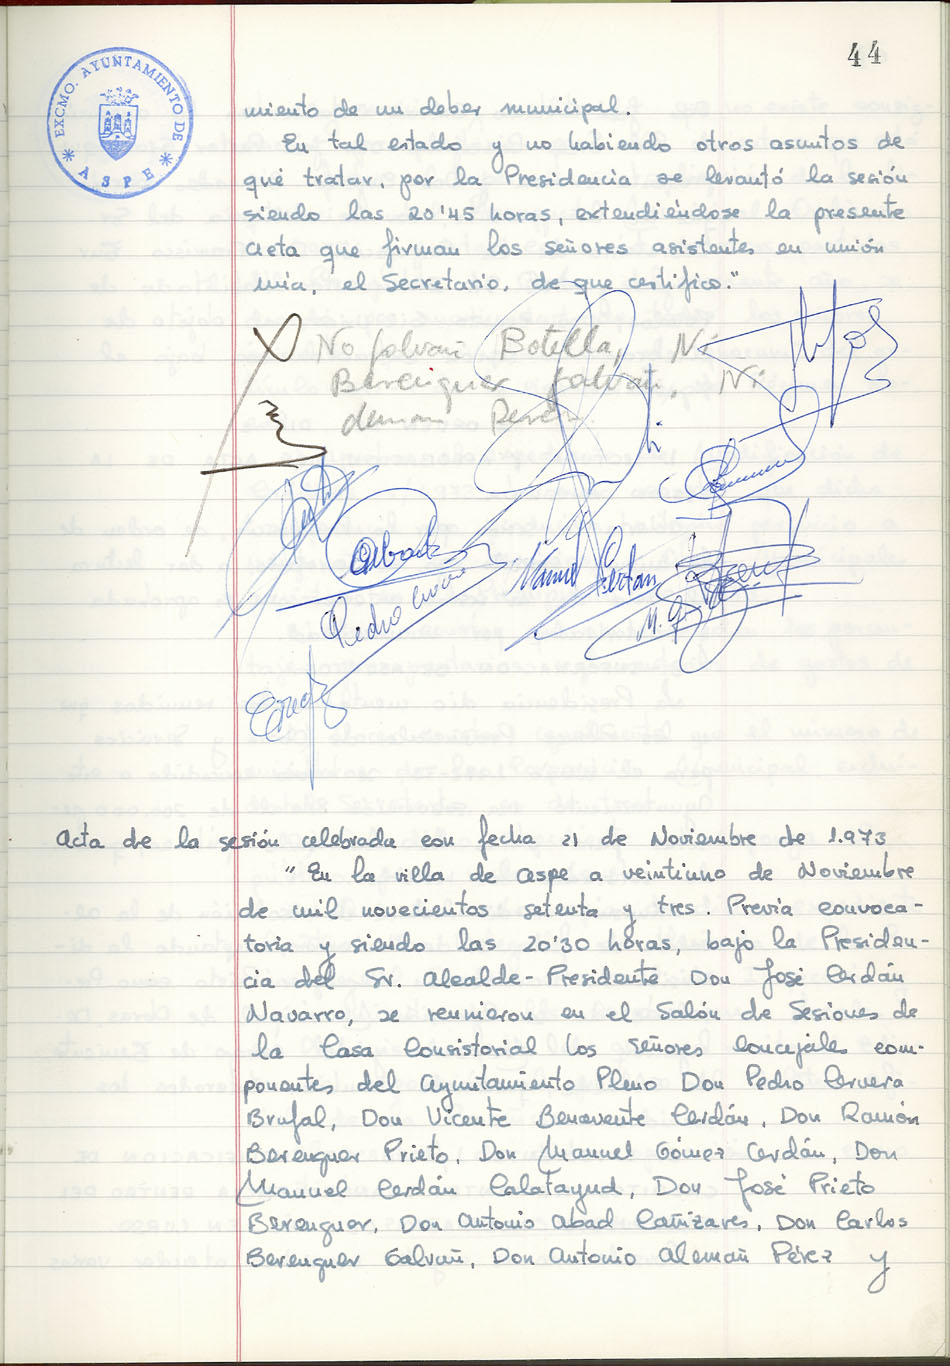 44
EXCMO. AYUNTAMIENTO DE
* ASPE *
miento de un deber municipal.
En tal estado y no habiendo otros asuntos de
qué tratar, por la Presidencia se levantó la sesión
siendo las 20'45 horas, extendiéndose la presente
acta que firman los señores asistentes en unión
mía, el Secretario, de que certifico."
No Galvañ Botella, Ni
Berenguer Galvañ, Ni
Pérez.
Abad
Manuel Cerdan
Pedro
M. G
Acta de la sesión celebrada con fecha 21 de Noviembre de 1.973
"En la villa de Aspe a veintiuno de Noviembre
de mil novecientos setenta y tres. Previa convoca-
toria y siendo las 20'30 horas, bajo la Presiden-
cia del Sr. Alcalde-Presidente Don José Cerdán
Navarro, se reunieron en el Salón de Sesiones de
la Casa Consistorial los señores Concejales com-
ponentes del Ayuntamiento Pleno Don Pedro Cervera
Brufal, Don Vicente Benavente Cerdán, Don Ramón
Berenguer Prieto, Don Manuel Gómez Cerdán, Don
Manuel Cerdán Calatayud, Don José Prieto
Berenguer, Don Antonio Abad Cañizares, Don Carlos
Berenguer Galvañ, Don Antonio Alemañ Pérez y